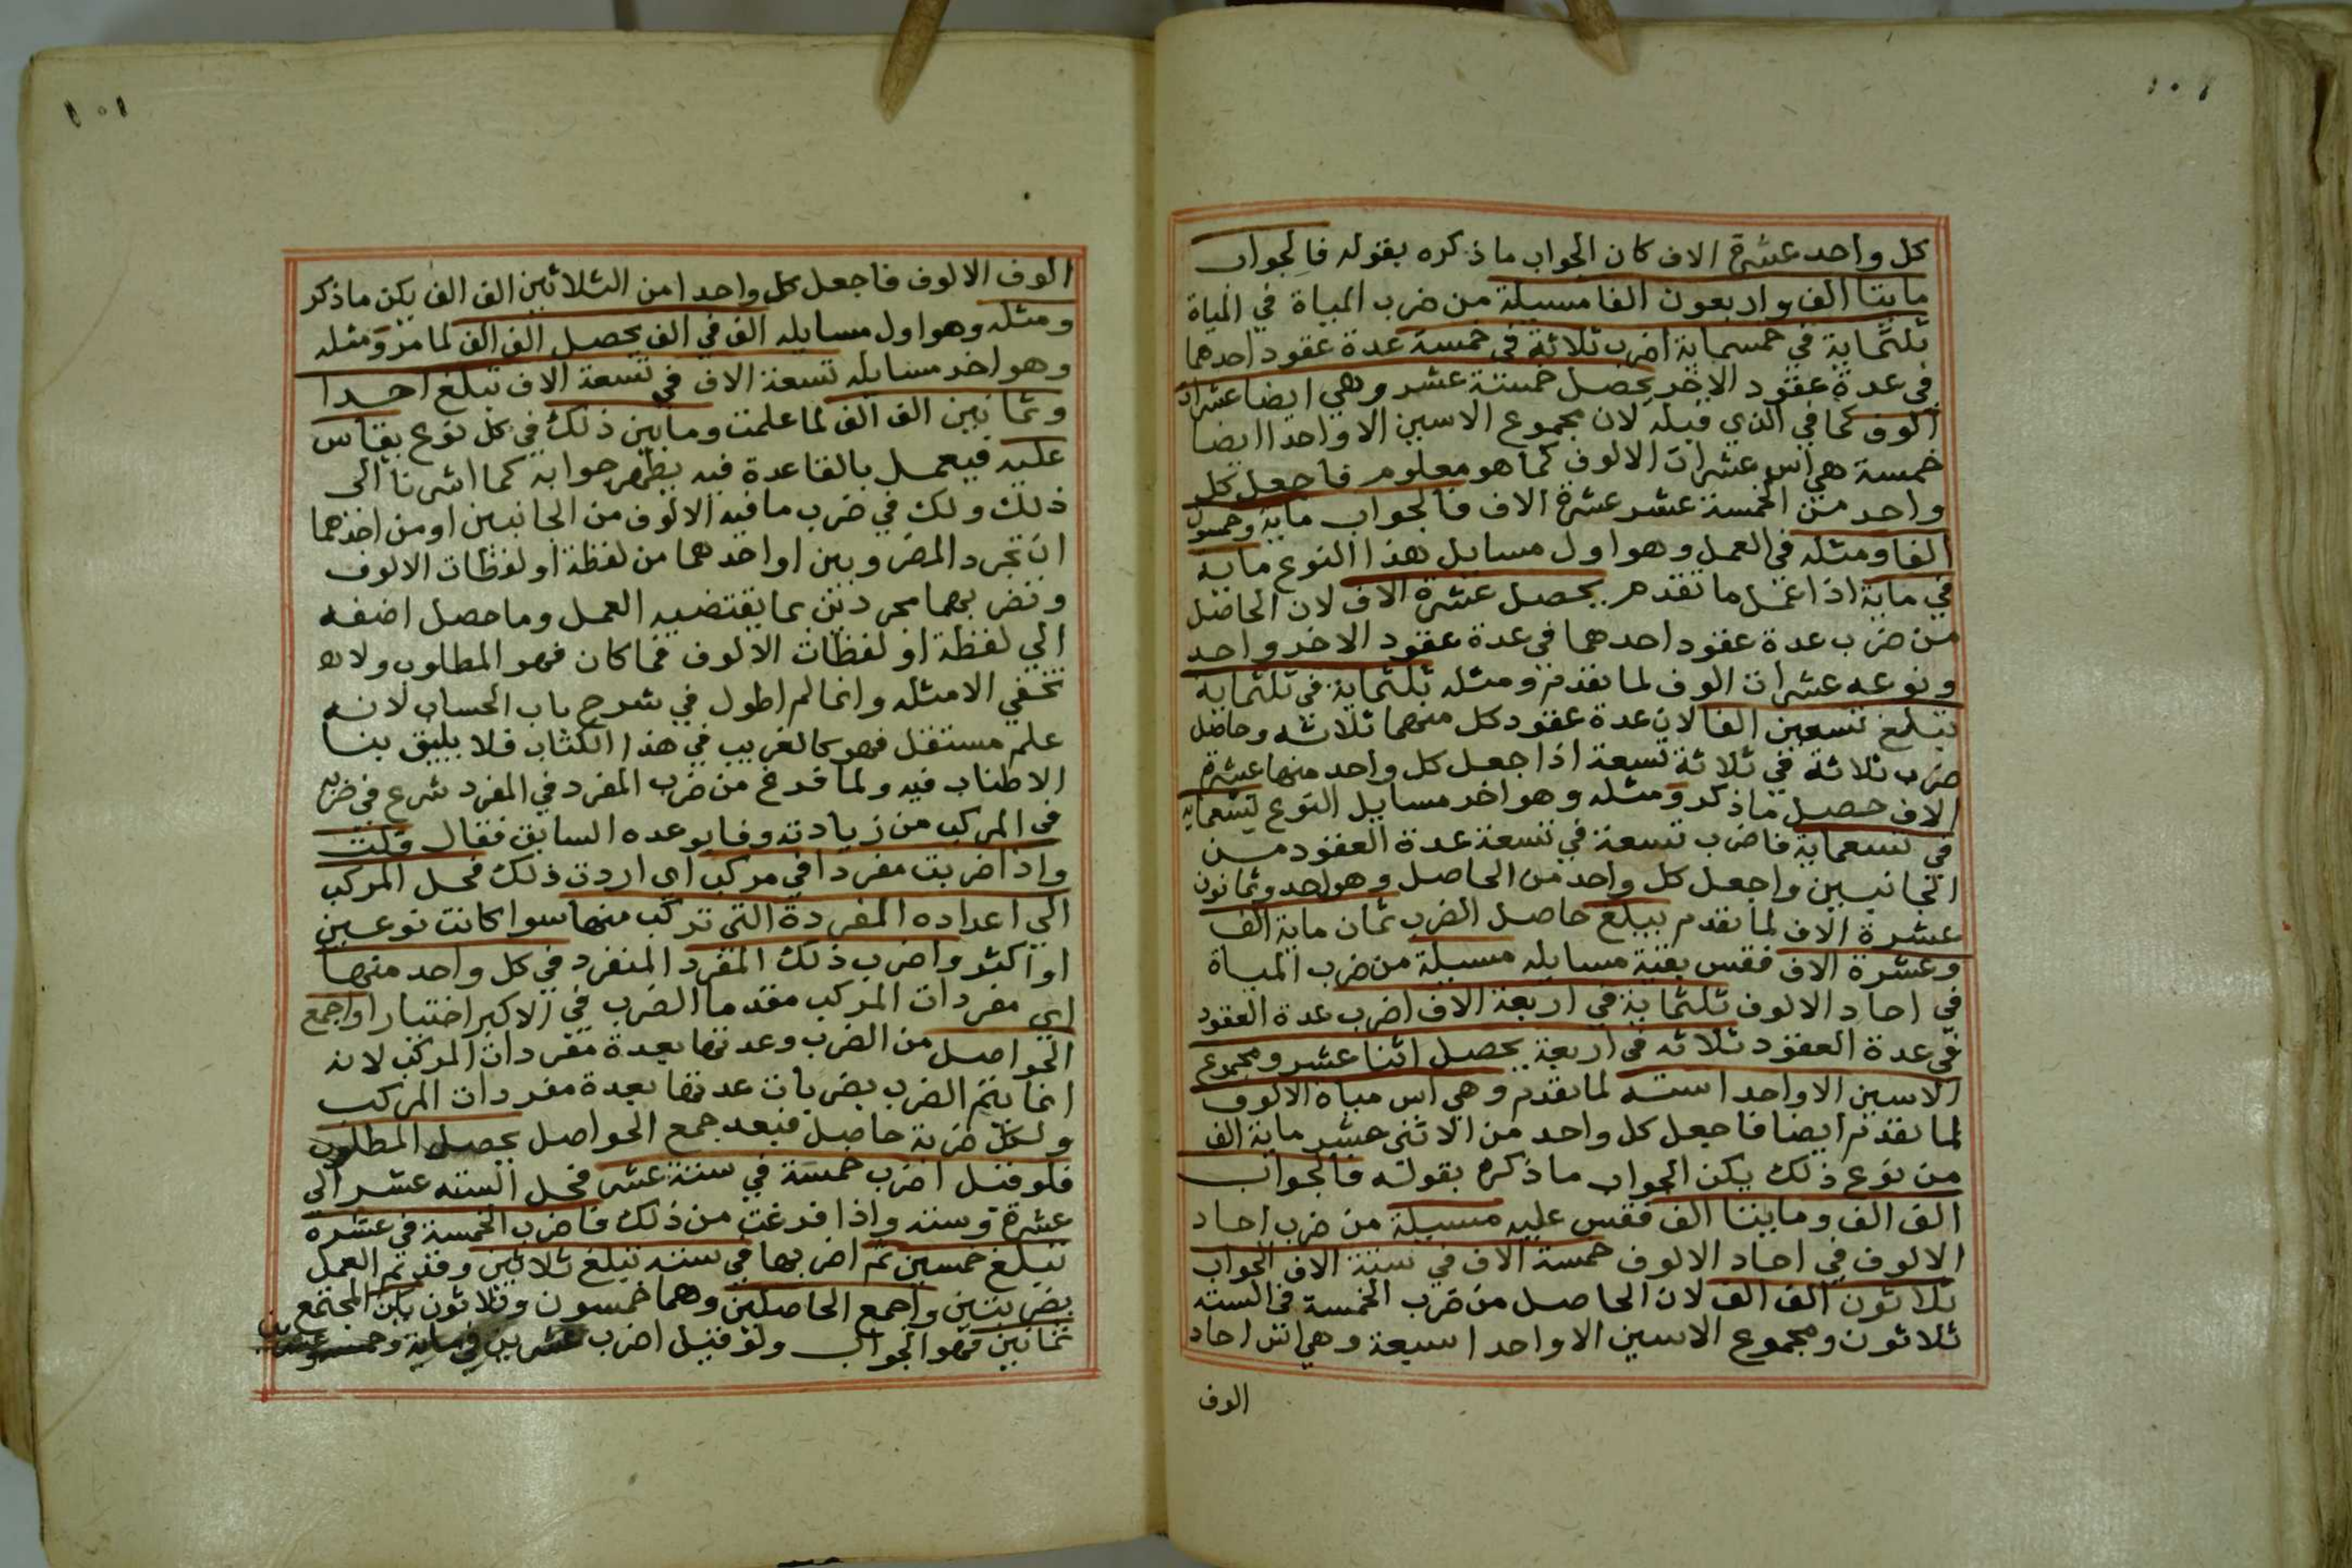 ١٠١
كل واحد عشرة الاف كان الجواب ماذكره بقوله فالجواب
مايتا الف واربعون الفا مسيلة من ضرب المياة في المياة
ثلثماية في خمسماية اضرب ثلاثة في خمسة عدة عقود احدهما
في عدة عقود الاخر يحصل خمسة عشر وهي ايضا عشرات
الوف كما في الذي قبله لان مجموع الاسين الا واحدا ايضا
خمسة هي اس عشرات الالوف كما هو معلوم فاجعل كل
واحد من الخمسة عشر عشرة الاف فالجواب ماية وخمسون
الفا ومثله في العمل وهو اول مسايل هذا النوع ماية
في ماية اذا عمل ما تقدم يحصل عشرة الاف لان الحاصل
من ضرب عدة عقود احدهما في عدة عقود الاخر واحد
ونوعه عشرات الوف لما تقدم ومثله ثلثماية في ثلثماية
تبلغ تسعين الفا لان عدة عقود كل منهما ثلاثه وحاصل
ضرب ثلاثة في ثلاثة تسعة اذا جعل كل واحد منها عشرة
الاف حصل ماذكر ومثله وهو اخر مسايل النوع تسعماية
في تسعماية فاضرب تسعة في تسعة عدة العقود من
الجانبين واجعل كل واحد من الحاصل وهو احد وثمانون
عشرة الاف لما تقدم يبلغ حاصل الضرب ثمان ماية الف
وعشرة الاف فقس بقية مسايله مسيلة من ضرب المياة
في احاد الالوف ثلثماية في اربعة الاف اضرب عدة العقود
في عدة العقود ثلاثه في اربعة يحصل اثنا عشر ومجموع
الاسين الا واحدا سته لما تقدم وهي اس مياة الالوف
لما تقدم ايضا فاجعل كل واحد من الاثنى عشر ماية الف
من نوع ذلك يكن الجواب ماذكره بقوله فالجواب
الف الف ومايتا الف فقس عليه مسيلة من ضرب احاد
الالوف في احاد الالوف خمسة الاف في ستة الاف الجواب
ثلاثون الف الف لان الحاصل من ضرب الخمسة في السته
ثلاثون ومجموع الاسين الا واحدا سبعة وهي اس احاد
الوف
١٠١
الوف الالوف فاجعل كل واحدا من الثلاثين الف الف يكن ماذكر
ومثله وهو اول مسايله الف في الف يحصل الف الف لما مر ومثله
وهو اخر مسايله تسعة الاف في تسعة الاف تبلغ احدا
وثمانين الف الف لما علمت وما بين ذلك في كل نوع يقاس
عليه فيعمل بالقاعدة فيه يظهر جوابه كما اشرنا الى
ذلك ولك في ضرب ما فيه الالوف من الجانبين او من احدهما
ان تجرد المضروبين او احدهما من لفظة او لفظات الالوف
وتضربهما مجردين بما يقتضيه العمل وما حصل اضفه
الي لفظة او لفظات الالوف فما كان فهو المطلوب ولا
تخفي الامثله وانما لم اطول في شرح باب الحساب لانه
علم مستقل فهو كالغريب في هذا الكتاب فلا يليق بنا
الاطناب فيه ولما فرغ من ضرب المفرد في المفرد شرع في ضربه
في المركب من زيادته وفا بوعده السابق فقال وقلت
واذا ضربت مفردا في مركب اي اردت ذلك فحل المركب
الي اعداده المفردة التي تركب منها سوا كانت نوعين
او اكثر واضرب ذلك المفرد المنفرد في كل واحد منها
اي مفردات المركب مقدما الضرب في الاكبر اختيارا واجمع
الحواصل من الضرب وعدتها بعدة مفردات المركب لانه
انما يتم الضرب بضربات عدتها بعدة مفردات المركب
ولكل ضربة حاصل فبعد جمع الحواصل يحصل المطلوب
فلو قيل اضرب خمسة في ستة عشر فحل السته عشر الي
عشرة وسته واذا فرغت من ذلك فاضرب الخمسة في عشره
تبلغ خمسين ثم اضربها في سته تبلغ ثلاثين وقد تم العمل
بضربتين واجمع الحاصلين وهما خمسون وثلاثون يكن المجتمع
ثمانين فهو الجواب ولو قيل اضرب عشرين في ماية وخمسة وعشرين